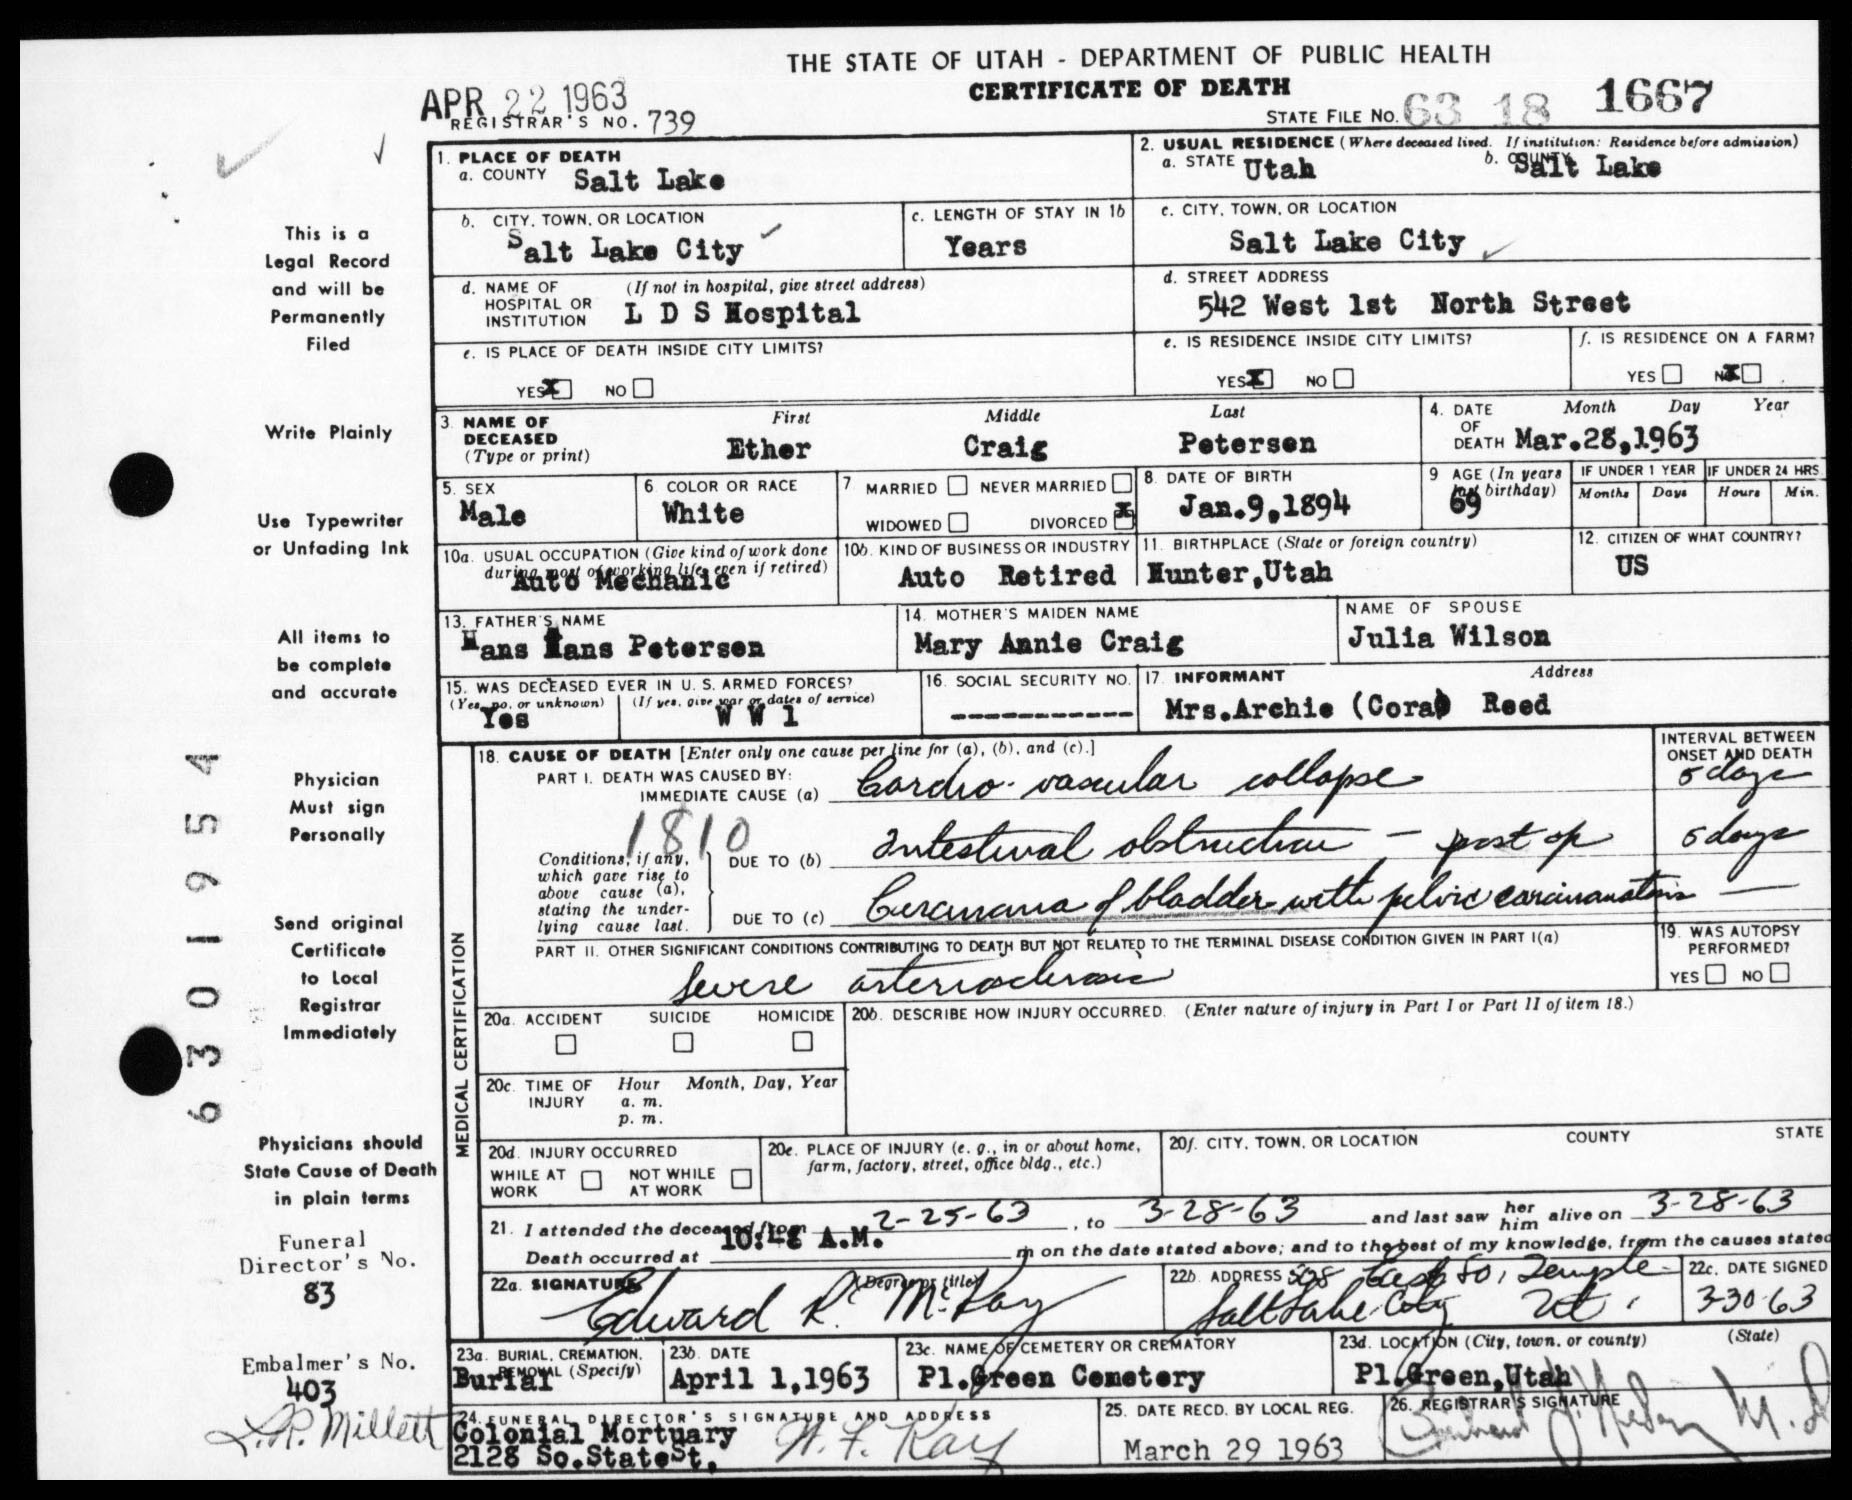 THE STATE OF UTAH - DEPARTMENT OF PUBLIC HEALTH
CERTIFICATE OF DEATH
APR 22 1963
REGISTRAR'S NO. 739
STATE FILE NO. 63 18 1667
This is a
Legal Record
and will be
Permanently
Filed
Write Plainly
Use Typewriter
or Unfading Ink
All items to
be complete
and accurate
Physician
Must sign
Personally
Send original
Certificate
to Local
Registrar
Immediately
Physicians should
State Cause of Death
in plain terms
Funeral
Director's No.
83
Embalmer's No.
403
L.R. Millett
6301954
1. PLACE OF DEATH
a. COUNTY Salt Lake
2. USUAL RESIDENCE (Where deceased lived. If institution: Residence before admission)
a. STATE Utah b. COUNTY Salt Lake
b. CITY, TOWN, OR LOCATION
Salt Lake City
c. LENGTH OF STAY IN 1b
Years
c. CITY, TOWN, OR LOCATION
Salt Lake City
d. NAME OF HOSPITAL OR INSTITUTION (If not in hospital, give street address)
L D S Hospital
d. STREET ADDRESS
542 West 1st North Street
e. IS PLACE OF DEATH INSIDE CITY LIMITS?
YES X NO
e. IS RESIDENCE INSIDE CITY LIMITS?
YES X NO
f. IS RESIDENCE ON A FARM?
YES NO X
3. NAME OF DECEASED (Type or print)
First Middle Last
Ether Craig Petersen
4. DATE OF DEATH Month Day Year
Mar.28,1963
5. SEX
Male
6. COLOR OR RACE
White
7 MARRIED NEVER MARRIED
WIDOWED DIVORCED X
8. DATE OF BIRTH
Jan.9,1894
9 AGE (In years last birthday)
69
IF UNDER 1 YEAR
Months Days
IF UNDER 24 HRS.
Hours Min.
10a. USUAL OCCUPATION (Give kind of work done during most of working life, even if retired)
Auto Mechanic
10b. KIND OF BUSINESS OR INDUSTRY
Auto Retired
11. BIRTHPLACE (State or foreign country)
Hunter,Utah
12. CITIZEN OF WHAT COUNTRY?
US
13. FATHER'S NAME
Hans Hans Petersen
14. MOTHER'S MAIDEN NAME
Mary Annie Craig
NAME OF SPOUSE
Julia Wilson
15. WAS DECEASED EVER IN U. S. ARMED FORCES?
(Yes, no. or unknown) (If yes, give war or dates of service)
Yes W W 1
16. SOCIAL SECURITY NO.
------------
17. INFORMANT Address
Mrs.Archie (Cora) Reed
MEDICAL CERTIFICATION
18. CAUSE OF DEATH [Enter only one cause per line for (a), (b), and (c).]
INTERVAL BETWEEN ONSET AND DEATH
PART I. DEATH WAS CAUSED BY:
IMMEDIATE CAUSE (a) Cardio-vascular collapse 5 days
1810
Conditions, if any, which gave rise to above cause (a), stating the underlying cause last.
DUE TO (b) Intestinal obstruction - post op 5 days
DUE TO (c) Carcinoma of bladder with pelvic carcinomatosis —
PART II. OTHER SIGNIFICANT CONDITIONS CONTRIBUTING TO DEATH BUT NOT RELATED TO THE TERMINAL DISEASE CONDITION GIVEN IN PART I(a)
Severe arteriosclerosis
19. WAS AUTOPSY PERFORMED?
YES NO
20a. ACCIDENT SUICIDE HOMICIDE
20b. DESCRIBE HOW INJURY OCCURRED. (Enter nature of injury in Part I or Part II of item 18.)
20c. TIME OF INJURY Hour Month, Day, Year
a. m.
p. m.
20d. INJURY OCCURRED
WHILE AT WORK NOT WHILE AT WORK
20e. PLACE OF INJURY (e. g., in or about home, farm, factory, street, office bldg., etc.)
20f. CITY, TOWN, OR LOCATION COUNTY STATE
21. I attended the deceased from 2-25-63, to 3-28-63 and last saw her him alive on 3-28-63
Death occurred at 10:48 A.M. m on the date stated above; and to the best of my knowledge, from the causes stated
22a. SIGNATURE (Degree or title)
Edward R. McKay
22b. ADDRESS 508 East So. Temple
Salt Lake City Ut.
22c. DATE SIGNED
3-30-63
23a. BURIAL, CREMATION, REMOVAL (Specify)
Burial
23b. DATE
April 1,1963
23c. NAME OF CEMETERY OR CREMATORY
Pl.Green Cemetery
23d. LOCATION (City, town, or county) (State)
Pl.Green,Utah
24. FUNERAL DIRECTOR'S SIGNATURE AND ADDRESS
Colonial Mortuary
2128 So.State St.
W. F. Kay
25. DATE RECD. BY LOCAL REG.
March 29 1963
26. REGISTRAR'S SIGNATURE
M.D